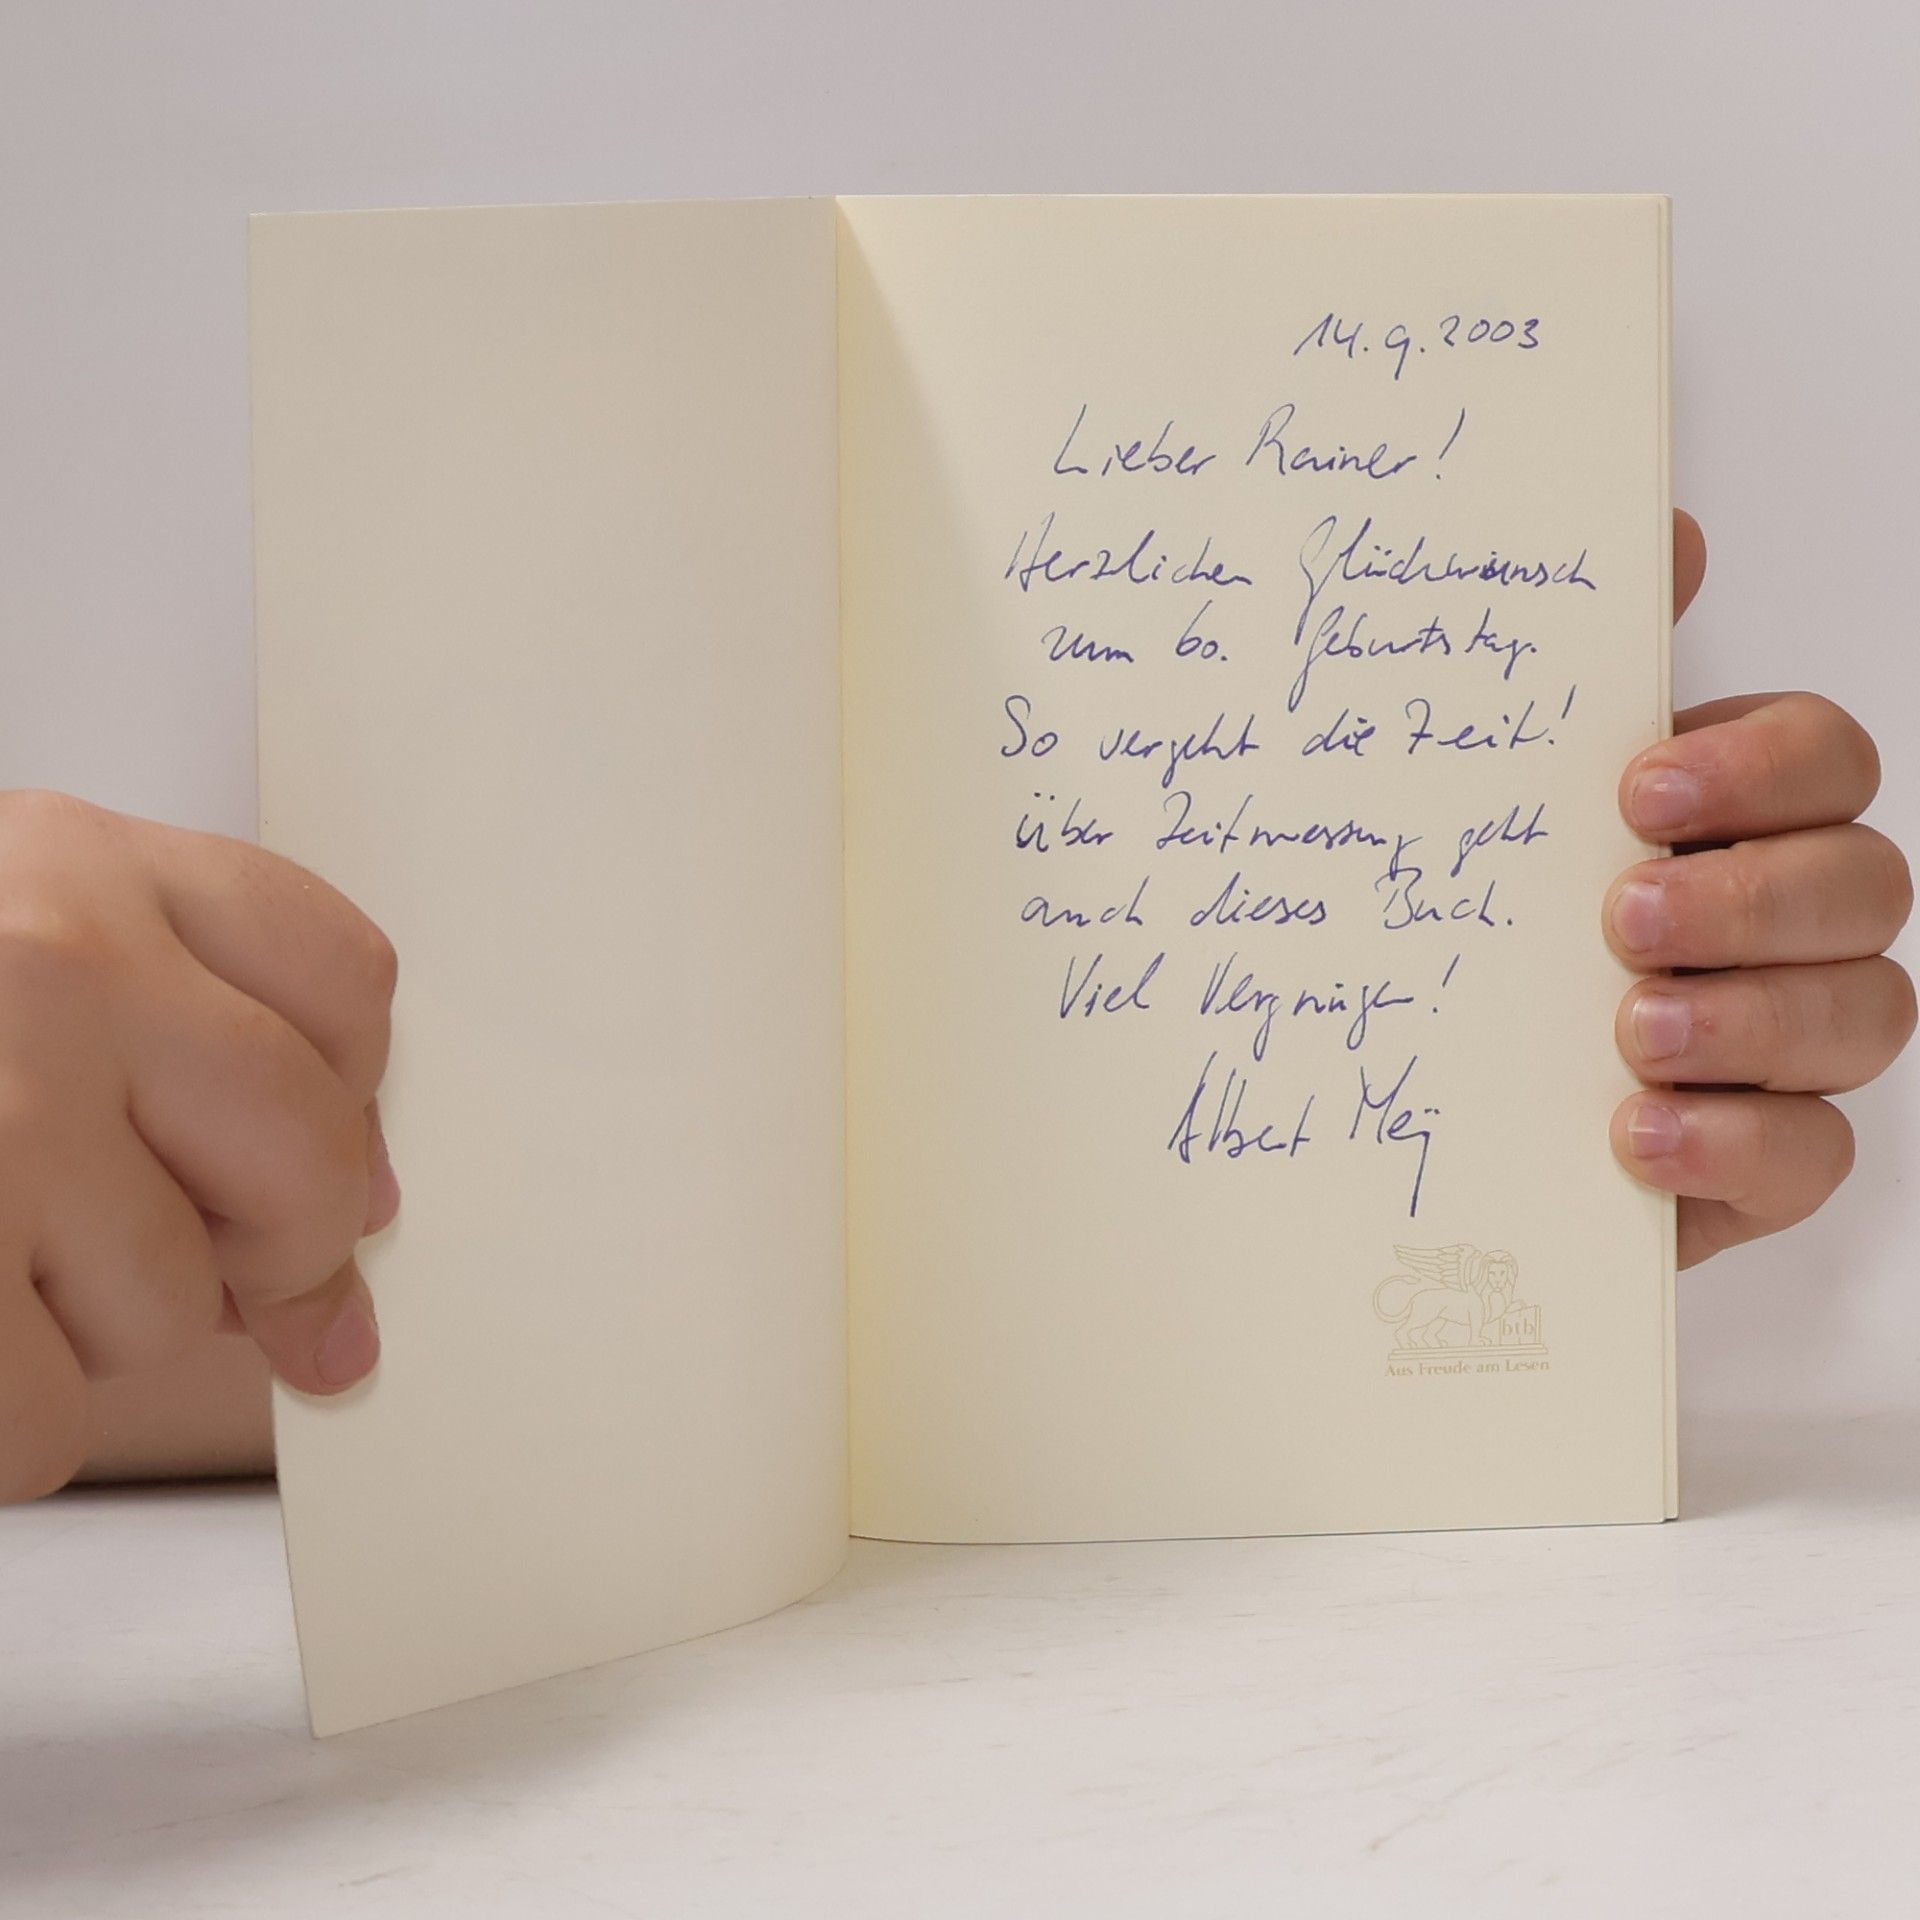 14.9.2003
Lieber Rainer!
Herzlichen Glückwunsch
zum 60. Geburtstag.
So vergeht die Zeit!
Über Zeitmessung geht
auch dieses Buch.
Viel Vergnügen!
Albert Mey
btb
Aus Freude am Lesen